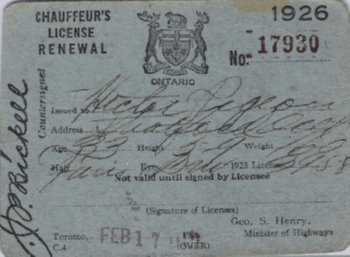 CHAUFFEUR'S
LICENSE
RENEWAL
1926
No. 17930
ONTARIO
Countersigned
J.P. Bickell
Issued to Victor Pigeon
Address
Age 33 Height 5-9 Weight
Hair Eyes 1925 License
Not valid until signed by Licensee
(Signature of Licensee)
Geo. S. Henry,
Minister of Highways
Toronto, FEB 17
C.4 (OVER)